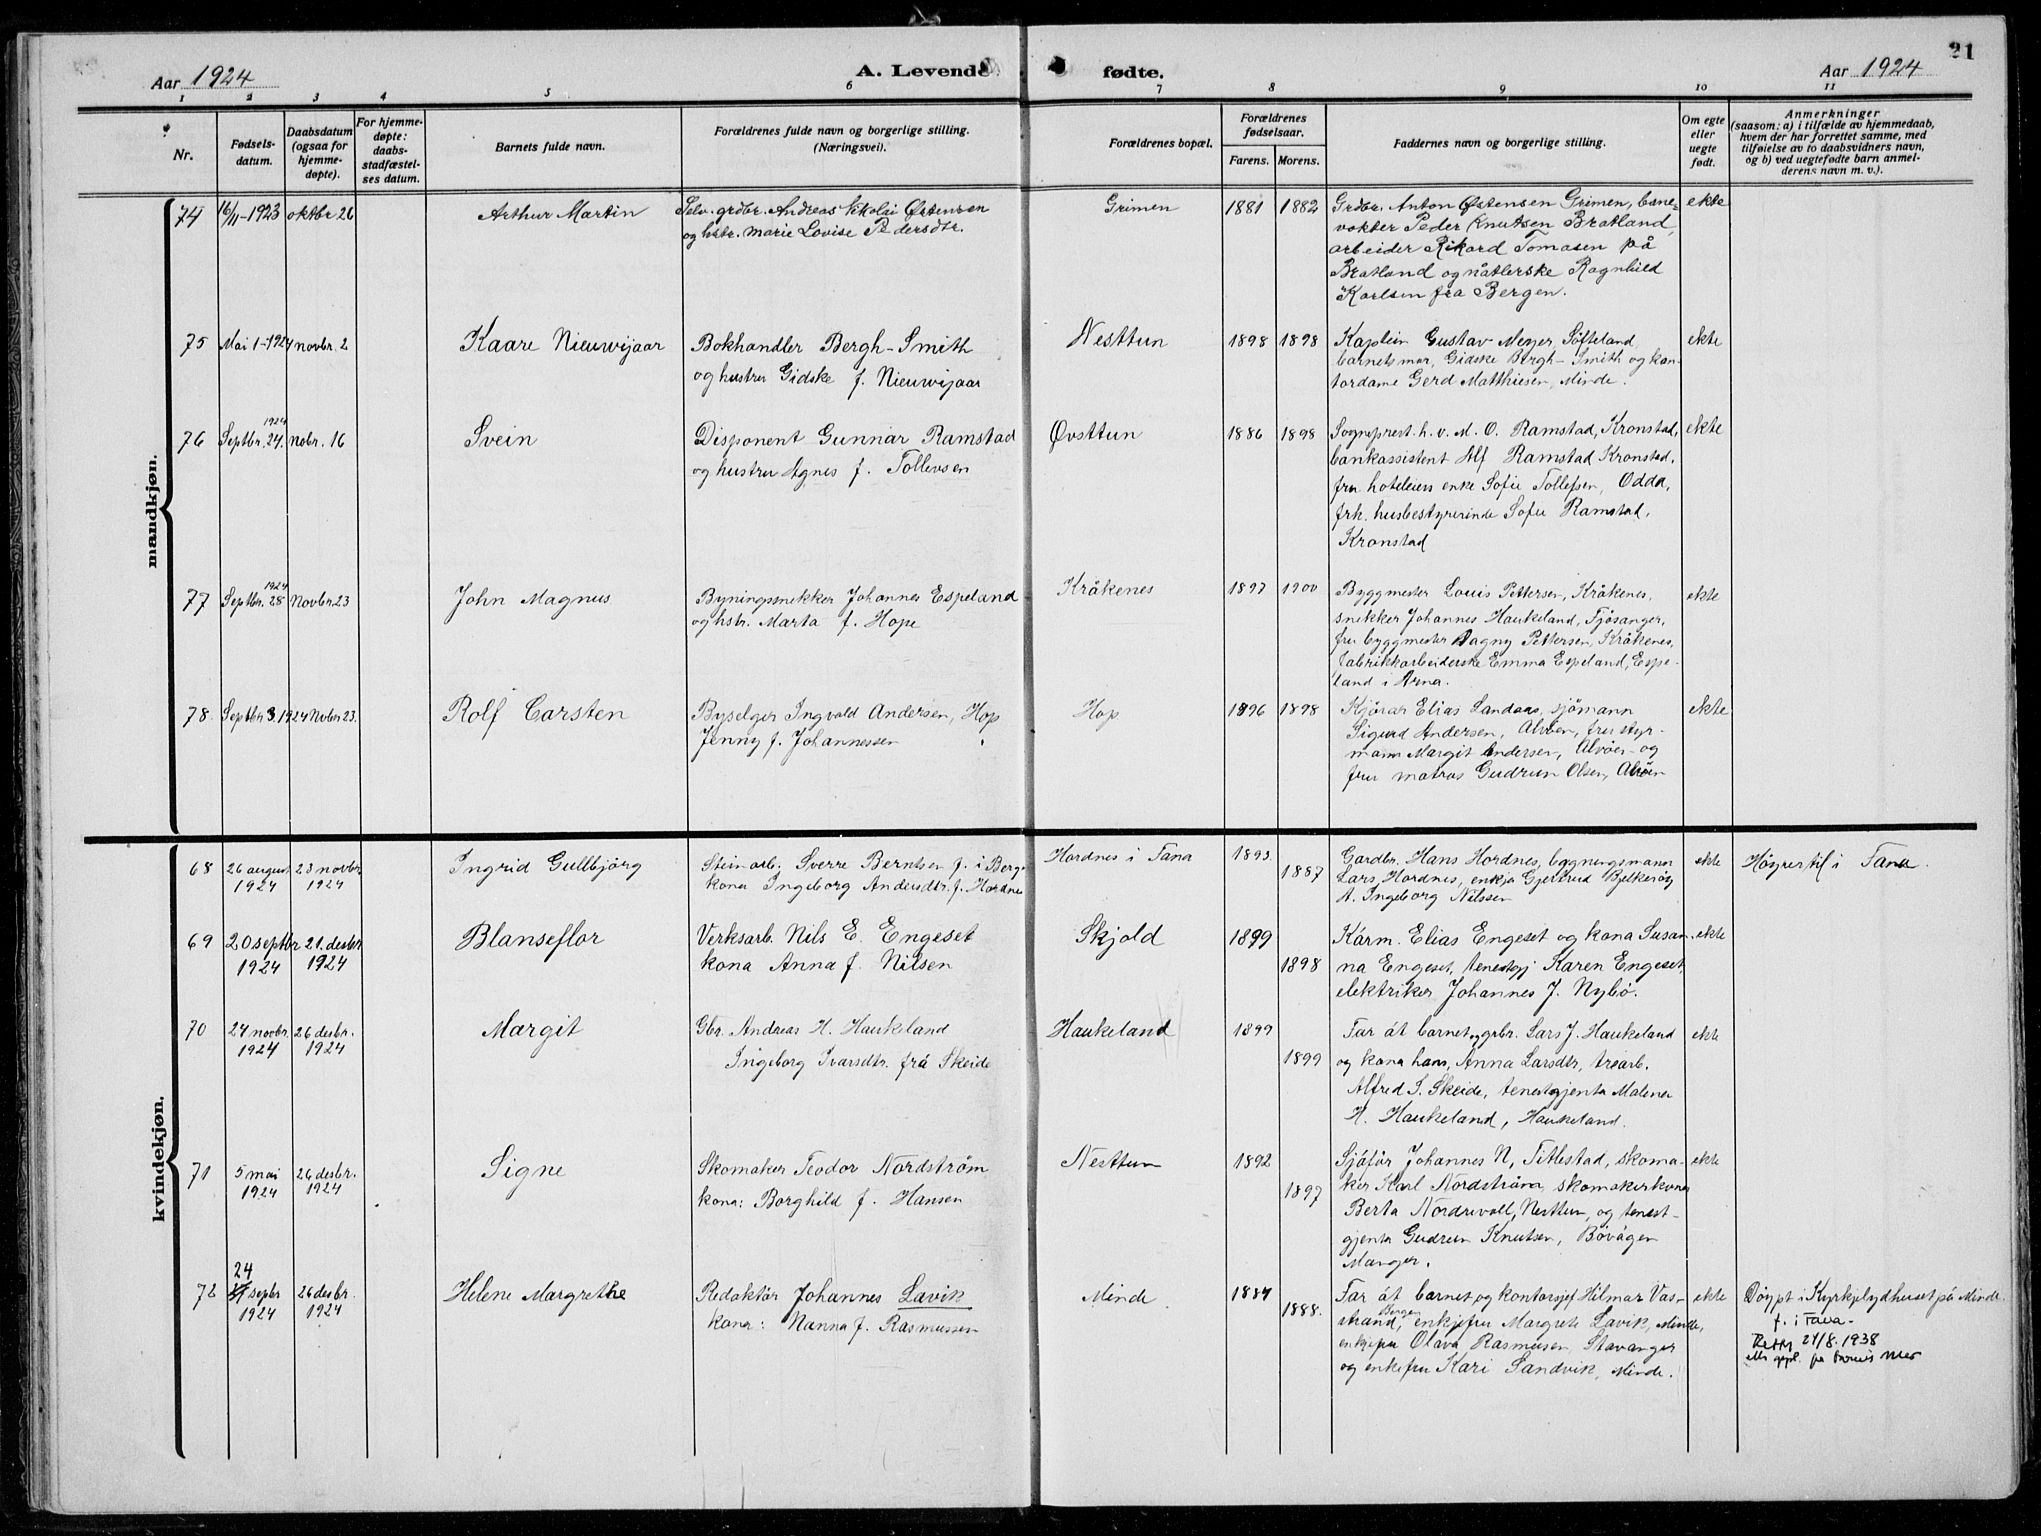 21
Aar 1924
A. Levende fødte.
Aar 1924
1 2 3 4 5 6 7 8 9 10 11
Nr.
Fødsels-
datum.
Daabsdatum
(ogsaa for
hjemme-
døpte).
For hjemme-
døpte:
daabs-
stadfæstel-
ses datum.
Barnets fulde navn.
Forældrenes fulde navn og borgerlige stilling.
(Næringsvei).
Forældrenes bopæl.
Forældrenes
fødselsaar.
Farens. Morens.
Faddernes navn og borgerlige stilling.
Om egte
eller
uegte
født.
Anmerkninger
(saasom: a) i tilfælde av hjemmedaab,
hvem der har forrettet samme, med
tilføielse av to daabsvidners navn,
og b) ved uegtefødte barn anmel-
derens navn m. v.).
mandkjøn.
74 16/11-1923 oktbr 26 Arthur Martin
Selv. grdbr. Andreas Nikolai Østensen
og hstr. Marie Lovise Pedersdtr.
Grimen 1881 1882
Grdbr. Anton Østensen Grimen, bane-
vokter Peder Knutsen Bratland,
arbeider Rikard Tomasen på
Bratland og nåtlerske Ragnhild
Karlsen fra Bergen.
ekte
75 Mai 1-1924 novbr. 2 Kaare Nieuwijaar
Bokhandler Bergh-Smith
og hustru Gidske f. Nieuwijaar
Nesttun 1898 1898
Kaptein Gustav Meyer, Søfteland,
barnets mor, Gidske Bergh-Smith og kon-
tordame Gerd Matthiesen, Minde.
ekte
76 Septbr. 24. 1924 nobr. 16 Svein
Disponent Gunnar Ramstad
og hustru Agnes f. Tollevsen
Øvsttun 1886 1898
Sogneprest h. v. M. O. Ramstad, Kronstad,
bankassistent Alf Ramstad Kronstad,
fru hoteleiers enke Sofie Tollefsen, Odda,
frk. husbestyrerinde Sofie Ramstad,
Kronstad
ekte
77 Septbr. 28 1924 Novbr 23 John Magnus
Bygningsnikker Johannes Espeland
og hstr. Marta f. Hope
Kråkenes 1897 1900
Byggmester Louis Pettersen, Kråkenes,
snekker Johannes Haukeland, Fjøsanger,
fru byggmester Dagny Pettersen, Kråkenes,
fabrikkarbeiderske Emma Espeland, Espe-
land i Arna.
ekte
78. Septbr 3. 1924 Novbr 23. Rolf Carsten
Byselger Ingvald Andersen, Hop
Jenny f. Johannessen
Hop 1896 1898
Kjørar Elias Landaas, sjømann
Sigurd Andersen, Alvøen, fru styr-
mann Margit Andersen, Alvøen og
fru matros Gudrun Olsen, Alvøen
ekte
kvindekjøn.
68 26 august 1924 23 novbr 1924 Ingrid Gullbjörg
Steinarb. Sverre Berntsen f. i Berg.
kona Ingeborg Andersdtr. f. Hordnes
Hordnes i Fana 1893. 1887
Gardbr. Hans Hordnes, bygningsmann
Lars Hordnes, enkja Gjertrud Bjelkerøy
A. Ingeborg Nilssen
ekte
Høyrer til i Fana.
69 20 septbr 1924 21. desbr 1924 Blanseflor
Verksarb. Nils E. Engeset
kona Anna f. Nilsen
Skjold 1899 1898
Kårm. Elias Engeset og kona Susan-
na Engeset, tenestgj Karen Engeset,
elektriker Johannes J. Nybö.
ekte
70 24 novbr. 1924 26 desbr. 1924 Margit
Gbr. Andreas H. Haukeland
Ingeborg Ivarsdtr. frå Skeide
Haukeland 1899 1899
Far åt barnet og grbr. Lars J. Haukeland
og kona hans, Anna Larsdtr, trearb.
Alfred I. Skeide, tenestgjenta Malena
H. Haukeland, Haukeland.
ekte
71 5 mai 1924 26 desbr. 1924 Signe
Skomaker Teodor Nordström
kona: Borghild f. Hansen
Nesttun 1892 1897
Sjåför Johannes N. Titlestad, skoma-
ker Karl Nordström, skomakerkona
Berta Nordrevoll, Nesttun, og tenest-
gjenta Gudrun Knutsen, Bövågen
Manger.
ekte
72 24 septbr 1924 26 desbr. 1924 Helene Margrethe
Redaktör Johannes Lavik
kona: Nanna f. Rasmussen
Minde 1884 1888.
Far åt barnet, og kontorsjef Hilmar Vas-
strand, Bergen enkjefru Margrete Lavik, Minde,
enkjefru Olava Rasmussen, Stavanger
og enkefru Kari Sandvik, Minde.
ekte
Döypt i Kyrkjelydhuset på Minde.
f. i Fana-
27/8. 1938